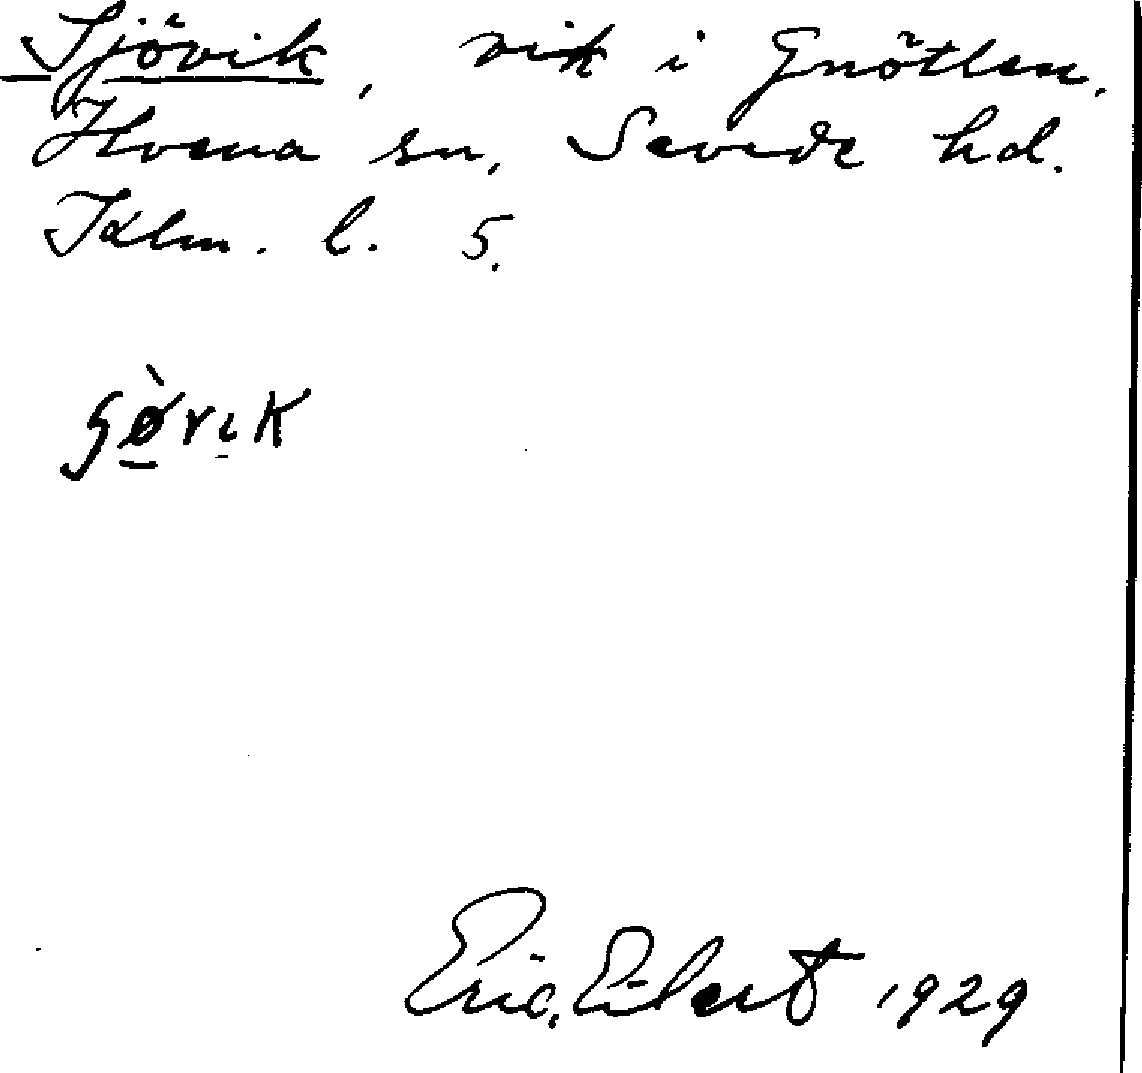 Sjövik, vik i Gnötteln.
Hvena sn, Sevede hd.
Kalm. l. 5.
sø̀vɩk
Eric. Eilert 1929